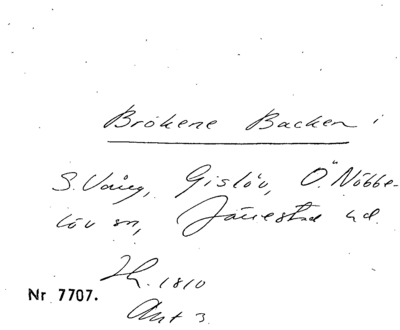 Brökene Backen i
S. Vång, Gislöv, Ö. Nöbbe-
löv sn, Järrestad hd.
1810
Nr 7707.
Akt 3